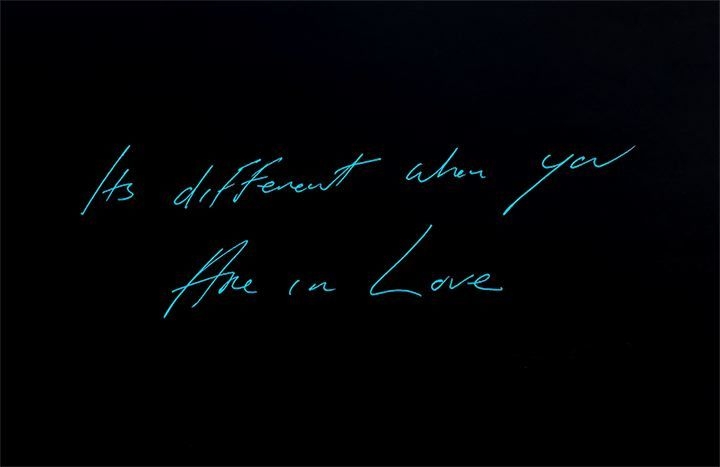 Its different when you
Are in Love